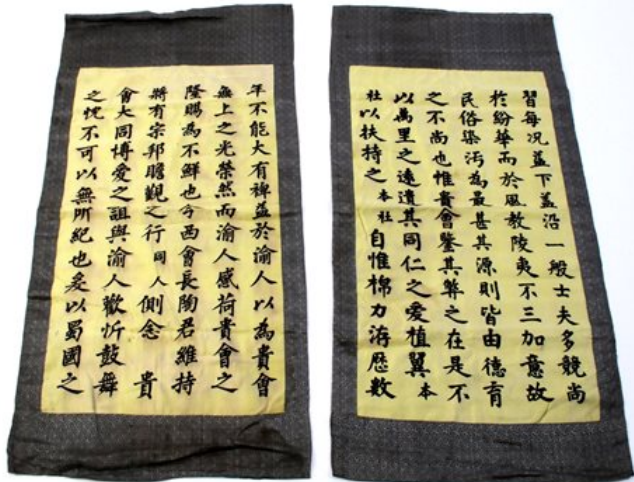 習每况益下蓋沿一般士夫多競尚
於紛華而於風教陵夷不三加意故
民俗染汚為最甚其源則皆由德育
之不尚也惟貴會鑒其弊之在是不
以萬里之遠遺其同仁之愛植翼本
社以扶持之本社自惟棉力洊歷數
年不能大有裨益於渝人以為貴會
無上之光榮然而渝人感荷貴會之
隆賜為不鮮也今西會長陶君維持
將有宗邦瞻觀之行同人側念貴
會大同博愛之誼與渝人歡忻鼓舞
之忱不可以無所紀也爰以蜀國之